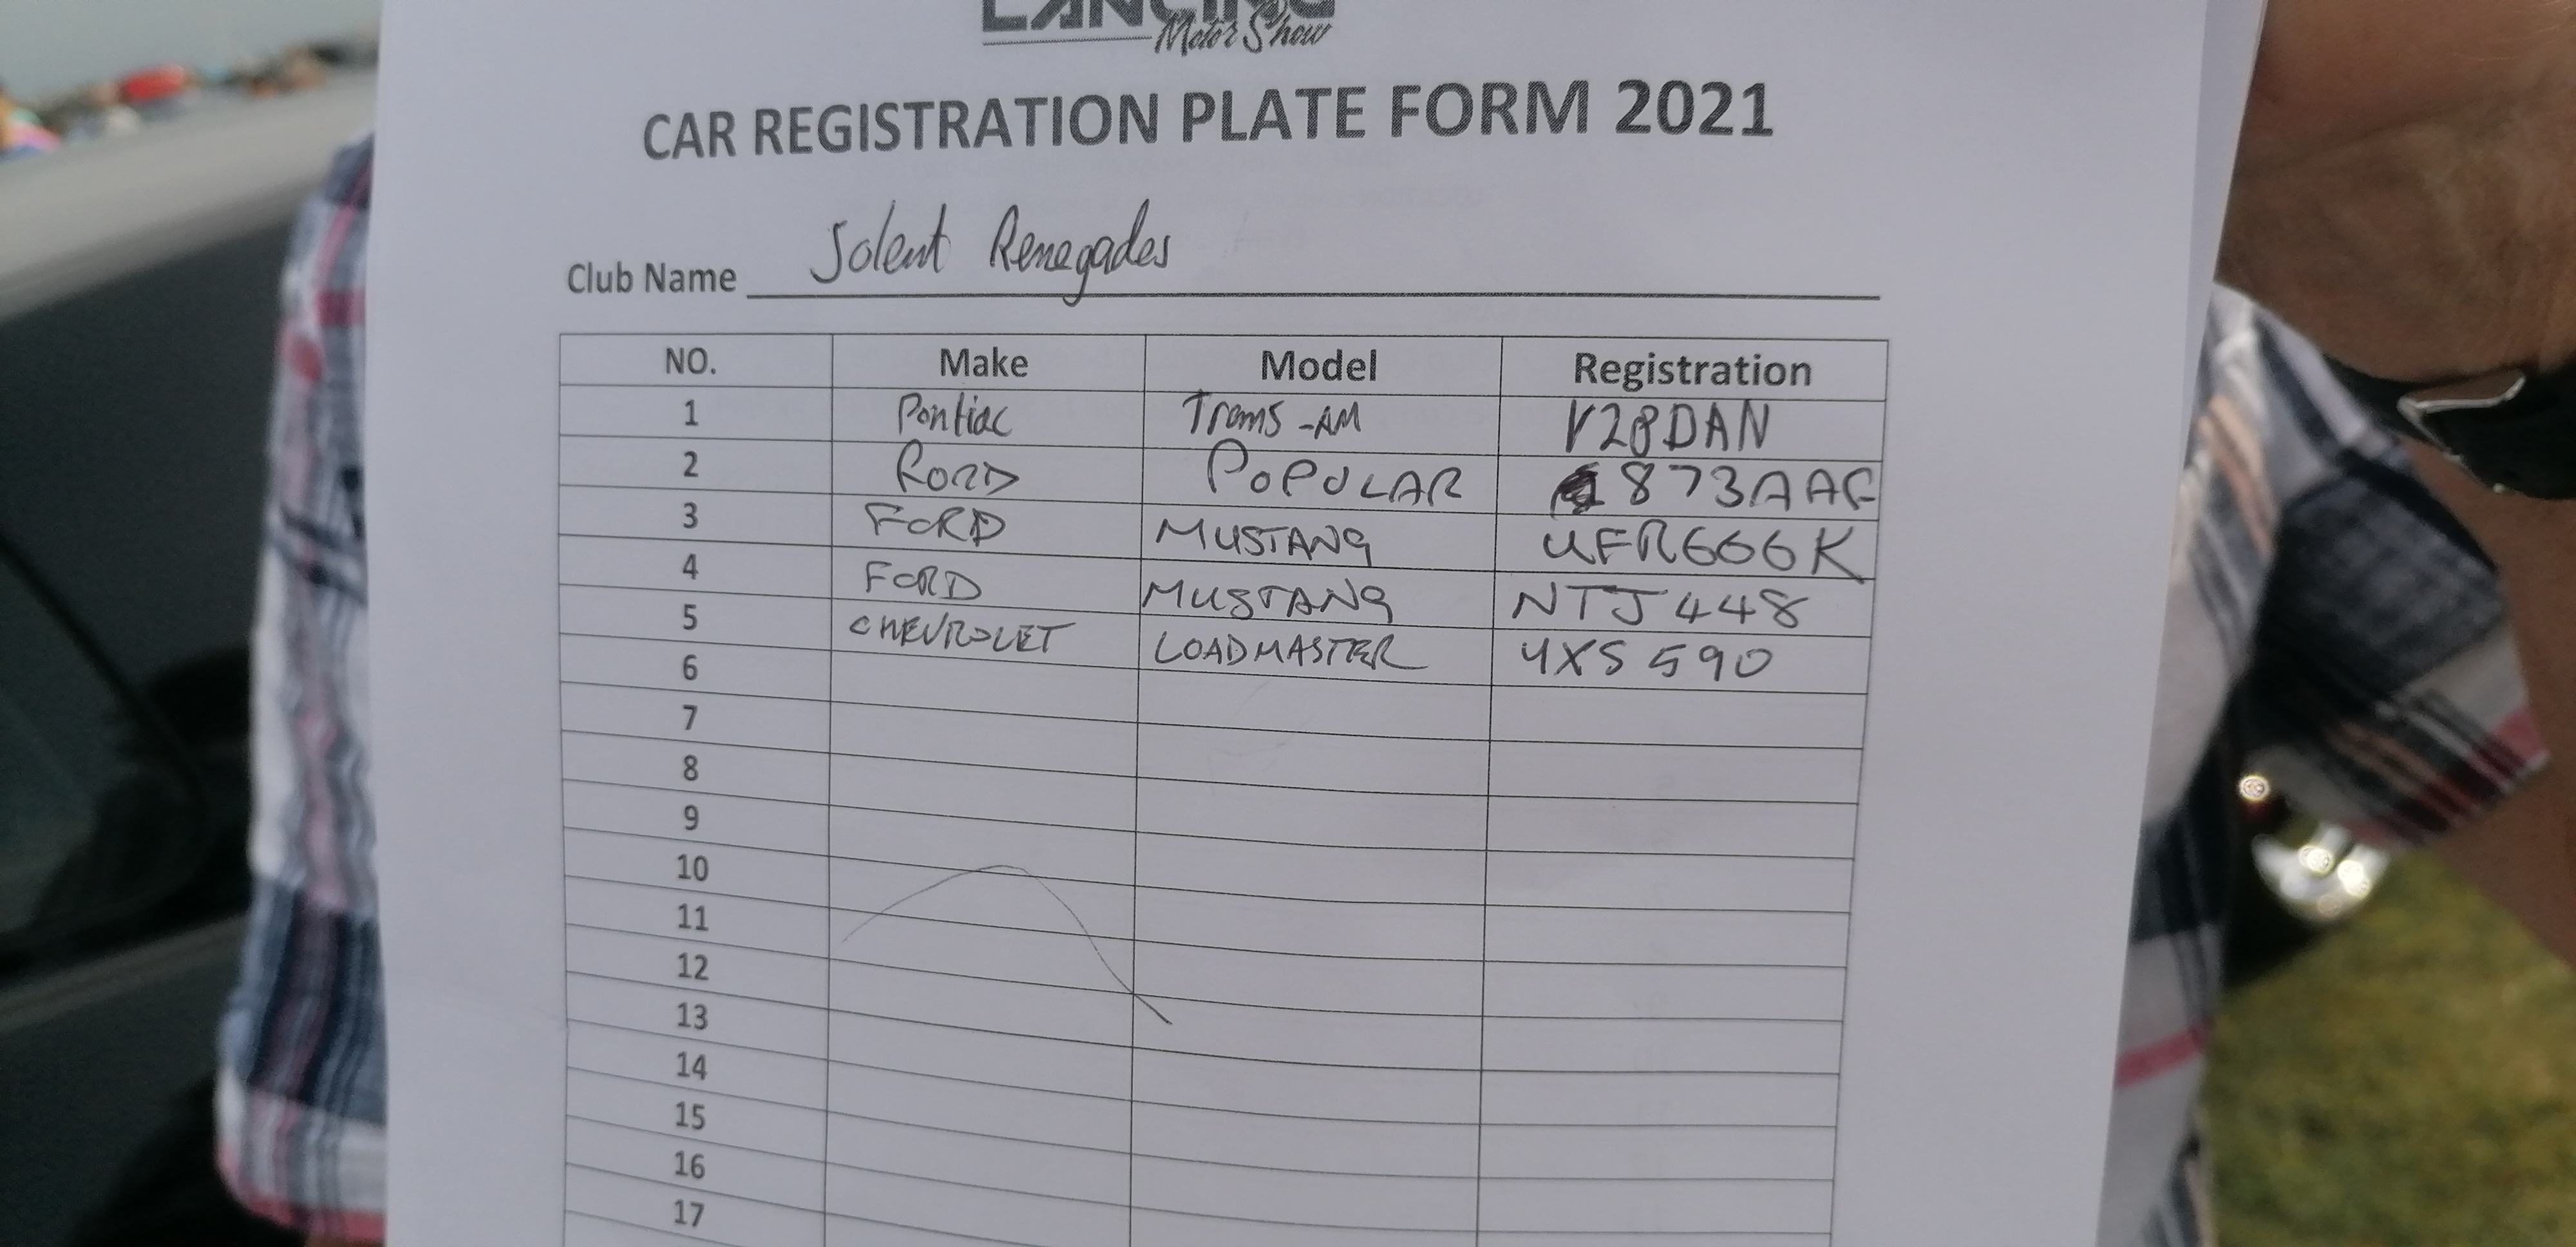 LANCING
Motor Show
CAR REGISTRATION PLATE FORM 2021
Club Name Solent Renegades
NO. Make Model Registration
1 Pontiac Trans-AM V28DAN
2 RORD POPULAR 873AAF
3 FORD MUSTANG UFR666K
4 FORD MUSTANG NTJ448
5 CHEVROLET LOADMASTER 4XS 590
6
7
8
9
10
11
12
13
14
15
16
17